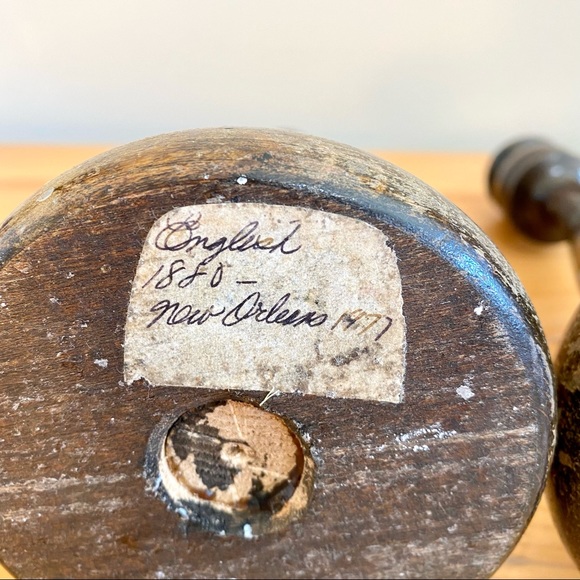 English
1880 -
New Orleans 1977